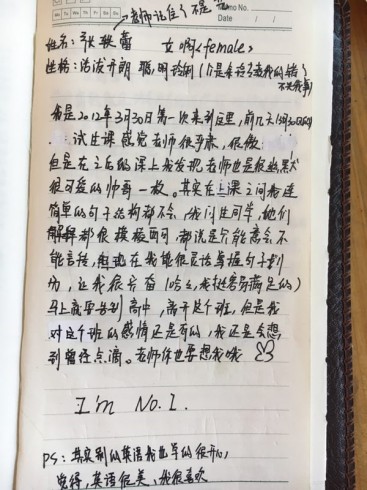 老师记住了
Memo No.
Mo Tu We Th Fr Sa Su
Date / /
姓名: 张轶蕾 女啊<female>
性格: 活泼开朗 聪明伶俐
不关我事)
我是2012年3月30日第一次来到这里,前几天(3月30日)
试过课感觉老师很严肃,很傲
但是在之后的课上我发现老师也是很幽默
很可爱的帅哥一枚。其实在上课之间我连
简单的句子结构都不会,我问过同学,他们
解释都很模棱两可,都说是只能意会不
能言传,但现在我能很灵活掌握句子划
分,让我很兴奋(哈哈,我挺容易满足的)
马上就要告别高中,离开这个班,但是我
对这个班的感情还是有的,我还是会想
到曾经点滴。老师你也要想我哦
I'm No.1.
PS: 其实别的英语我也学的很开心,
觉得,英语很美,我很喜欢